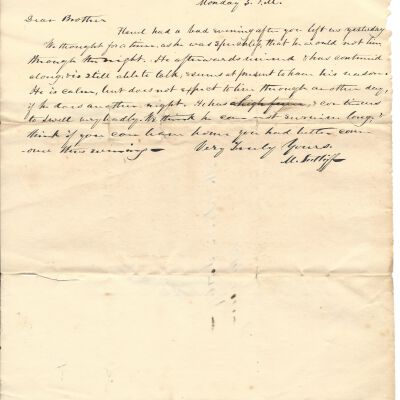 Monday 5. P.M.
Dear Brother
had a bad evening after you left us yesterday
We thought for a time, as he was speechless, that he would not live
through the night. He afterwards revived & has continued
along, is still able to talk, & seems at present to have his reason.
He is calm, but does not expect to live through another day,
if he does another night. He has high fever, & continues
to swell very badly. We think he can not survive long, &
think if you can leave home you had better come
one this evening
Very Truly Yours.
M.